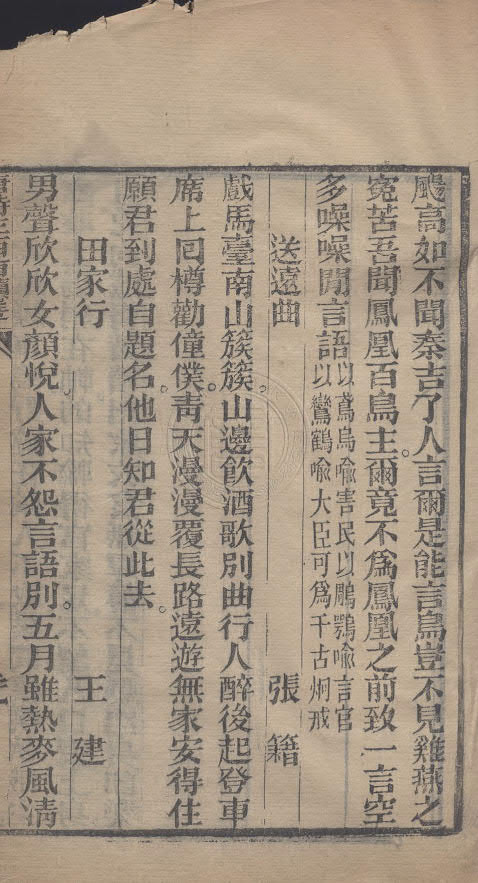 颺高如不聞秦吉了人言爾是能言鳥豈不見雞燕之
冤苦吾聞鳳凰百鳥主爾竟不爲鳳凰之前致一言空
多噪噪閒言語以鳶烏喻害民以鵰鶚喻言官
以鸞鶴喻大臣可爲千古炯戒
送遠曲 張籍
戲馬臺南山簇簇。山邊飲酒歌別曲行人醉後起登車
席上回樽勸僮僕。青天漫漫覆長路遠遊無家安得住
願君到處自題名他日知君從此去。
田家行 王建
男聲欣欣女顏悅。人家不怨言語別。五月雖熱麥風清